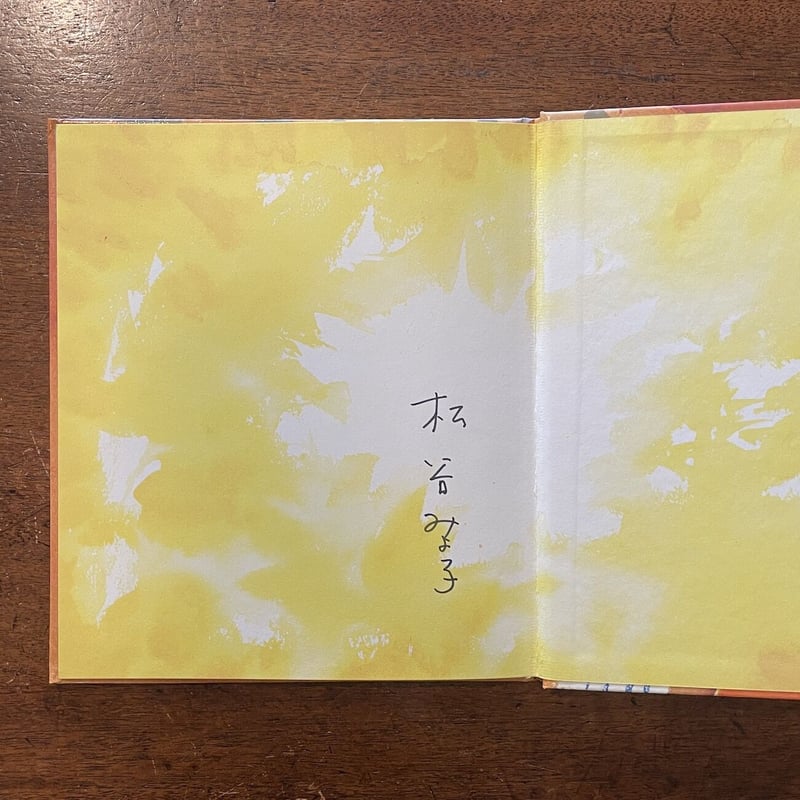 松谷みよ子